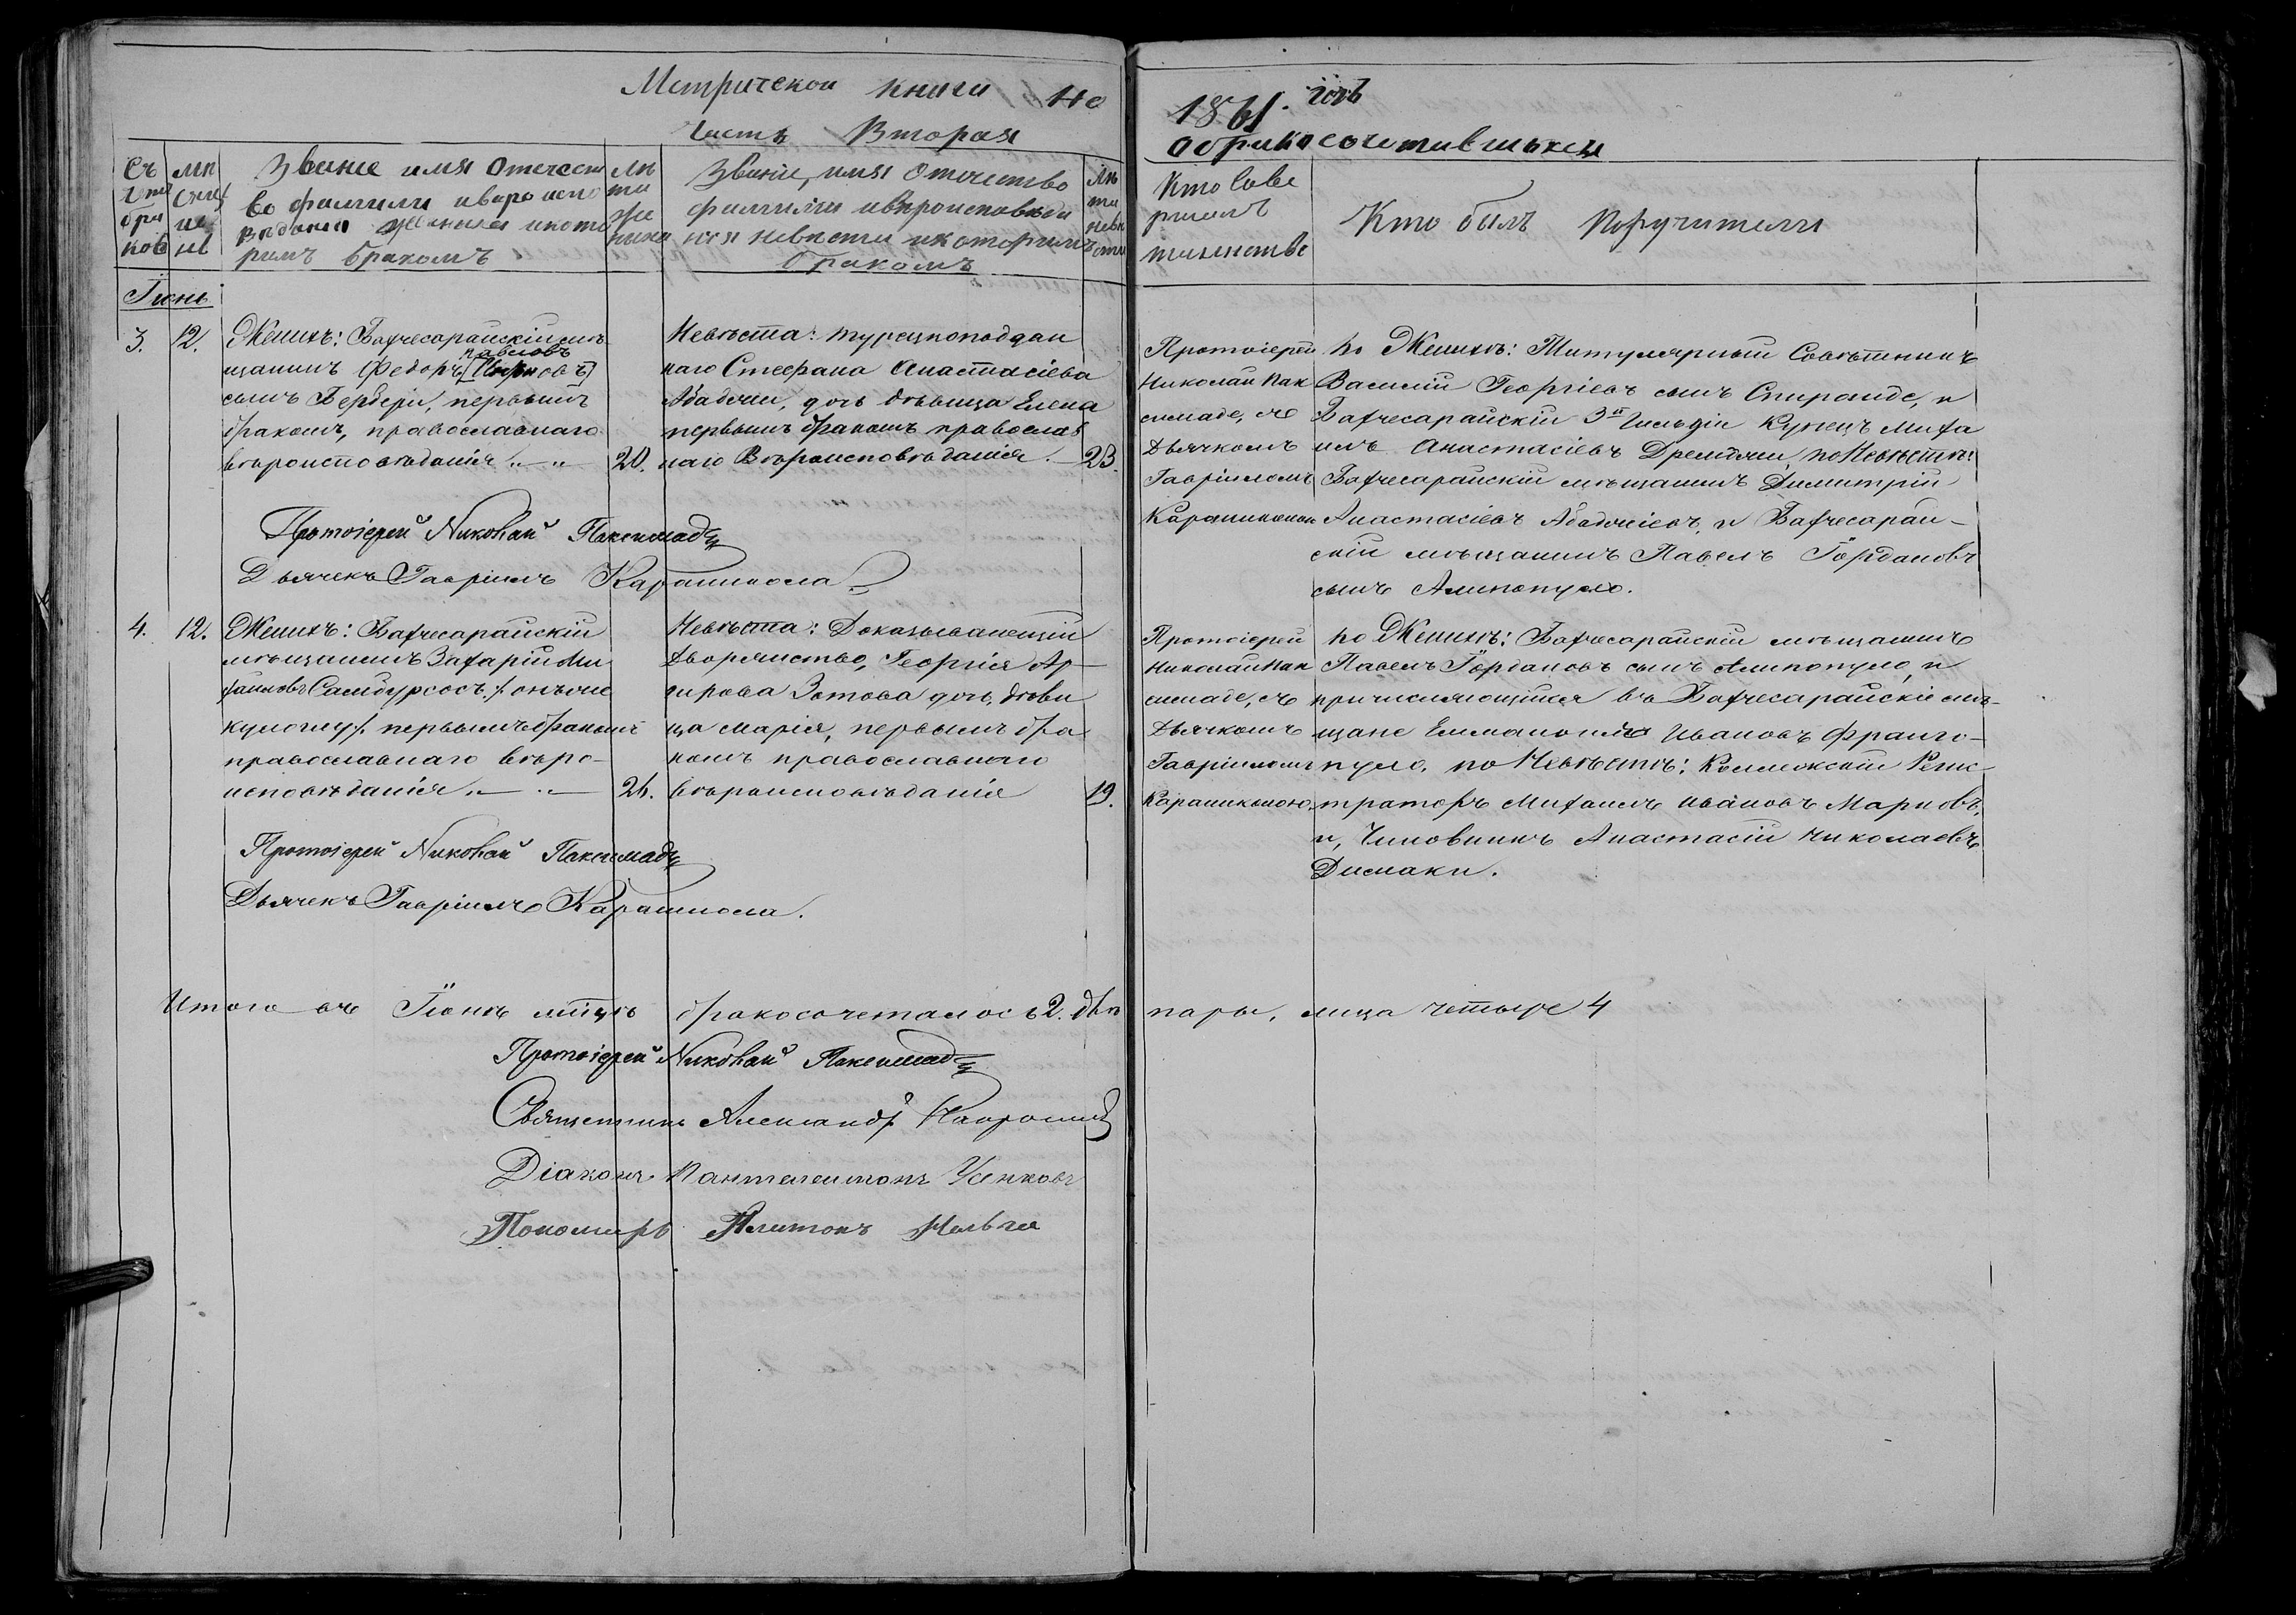 Метрической книги на
1861. годъ
Часть Вторая
о бракосочетавшихся
Счетъ браковъ
Мѣсяцъ и день
Званіе имя отечест
во фамилія и вѣроиспо
вѣданіе жениха и кото
римъ бракомъ
Лѣта жениха
Званіе, имя отчество
фамилія и вѣроисповѣда
нія невѣсти и которимъ
бракомъ
Лѣта невѣсти
Кто Сове
ршилъ
таинство
Кто былъ поручители
Іюнь
3.
12.
Женихъ: Бахчесарайскій мѣ
павловъ
щанинъ Федоръ
сынъ Бербери, первымъ
бракомъ, православнаго
вѣроисповѣданія
20.
Невѣста: турецкоподдан
наго Стефана Анастасіева
дочь дѣвица Елена
первымъ бракомъ православ
наго Вѣроисповѣданія
23.
Протоіерей
Николай Пак
симаде, съ
Дьячкомъ
Гавріиломъ
по Женихѣ: Титулярный Совѣтникъ
Василій Георгіевъ сынъ Спиранде, и
Бахчесарайскій 3й Гильдіи Купецъ Миха
илъ Анастасіевъ по Невѣстѣ:
Бахчесарайскій мѣщанинъ Димитрій
Анастасіевъ и Бахчесарай-
скій мѣщанинъ Павелъ Іордановъ
сынъ Алинопуло.
Протоіерей Николай Паксимади
Дьячекъ Гавріилъ
4.
12.
Женихъ: Бахчесарайскій
мѣщанинъ Захарій Ми
хаиловъ
первымъ бракомъ
православнаго вѣро-
исповѣданія
26.
Невѣста: Доказывающій
Дворянство, Георгія Ар-
гирова Зотова дочь, дѣви
ца Марія, первымъ бра
комъ православнаго
вѣроисповѣданія
19.
Протоіерей
Николай Пак
симаде, съ
Дьячкомъ
Гавріиломъ
по Женихѣ: Бахчесарайскій мѣщанинъ
Павелъ Іордановъ сынъ Алинопуло, и
причисляющійся въ Бахчесарайскіе мѣ-
щане Еммануилъ Ивановъ Франго-
пуло. по Невѣстѣ: Коллежскій Регис-
траторъ Михаилъ Ивановъ Мариовъ,
и, Чиновникъ Анастасій Николаевъ
Димаки.
Протоіерей Николай Паксимади
Дьячекъ Гавріилъ
Итого въ Іюнѣ мцѣ бракосочеталось 2. двѣ пары, лица четыре 4
Протоіерей Николай Паксимади
Священникъ Александръ
Діаконъ Пантелеимонъ Усенковъ
Пономарь Платонъ